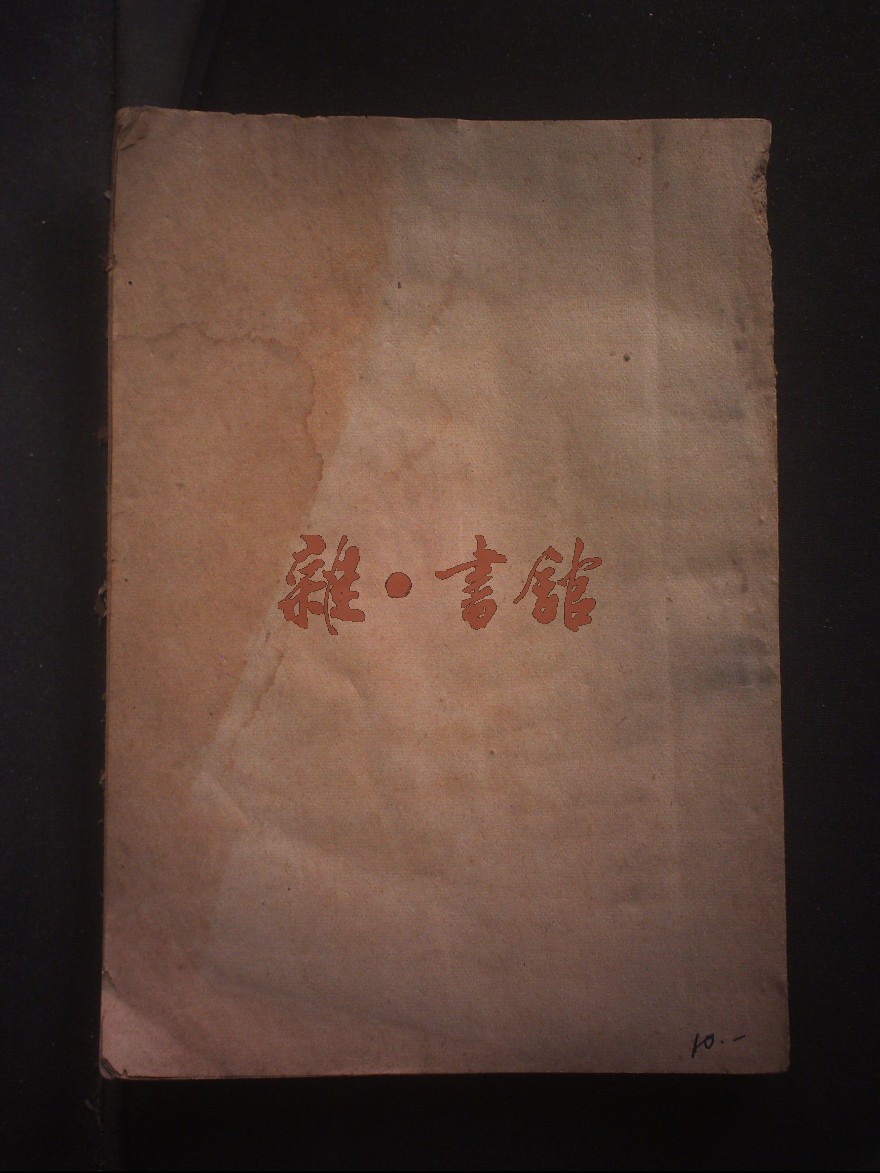 雜·書館
10.-